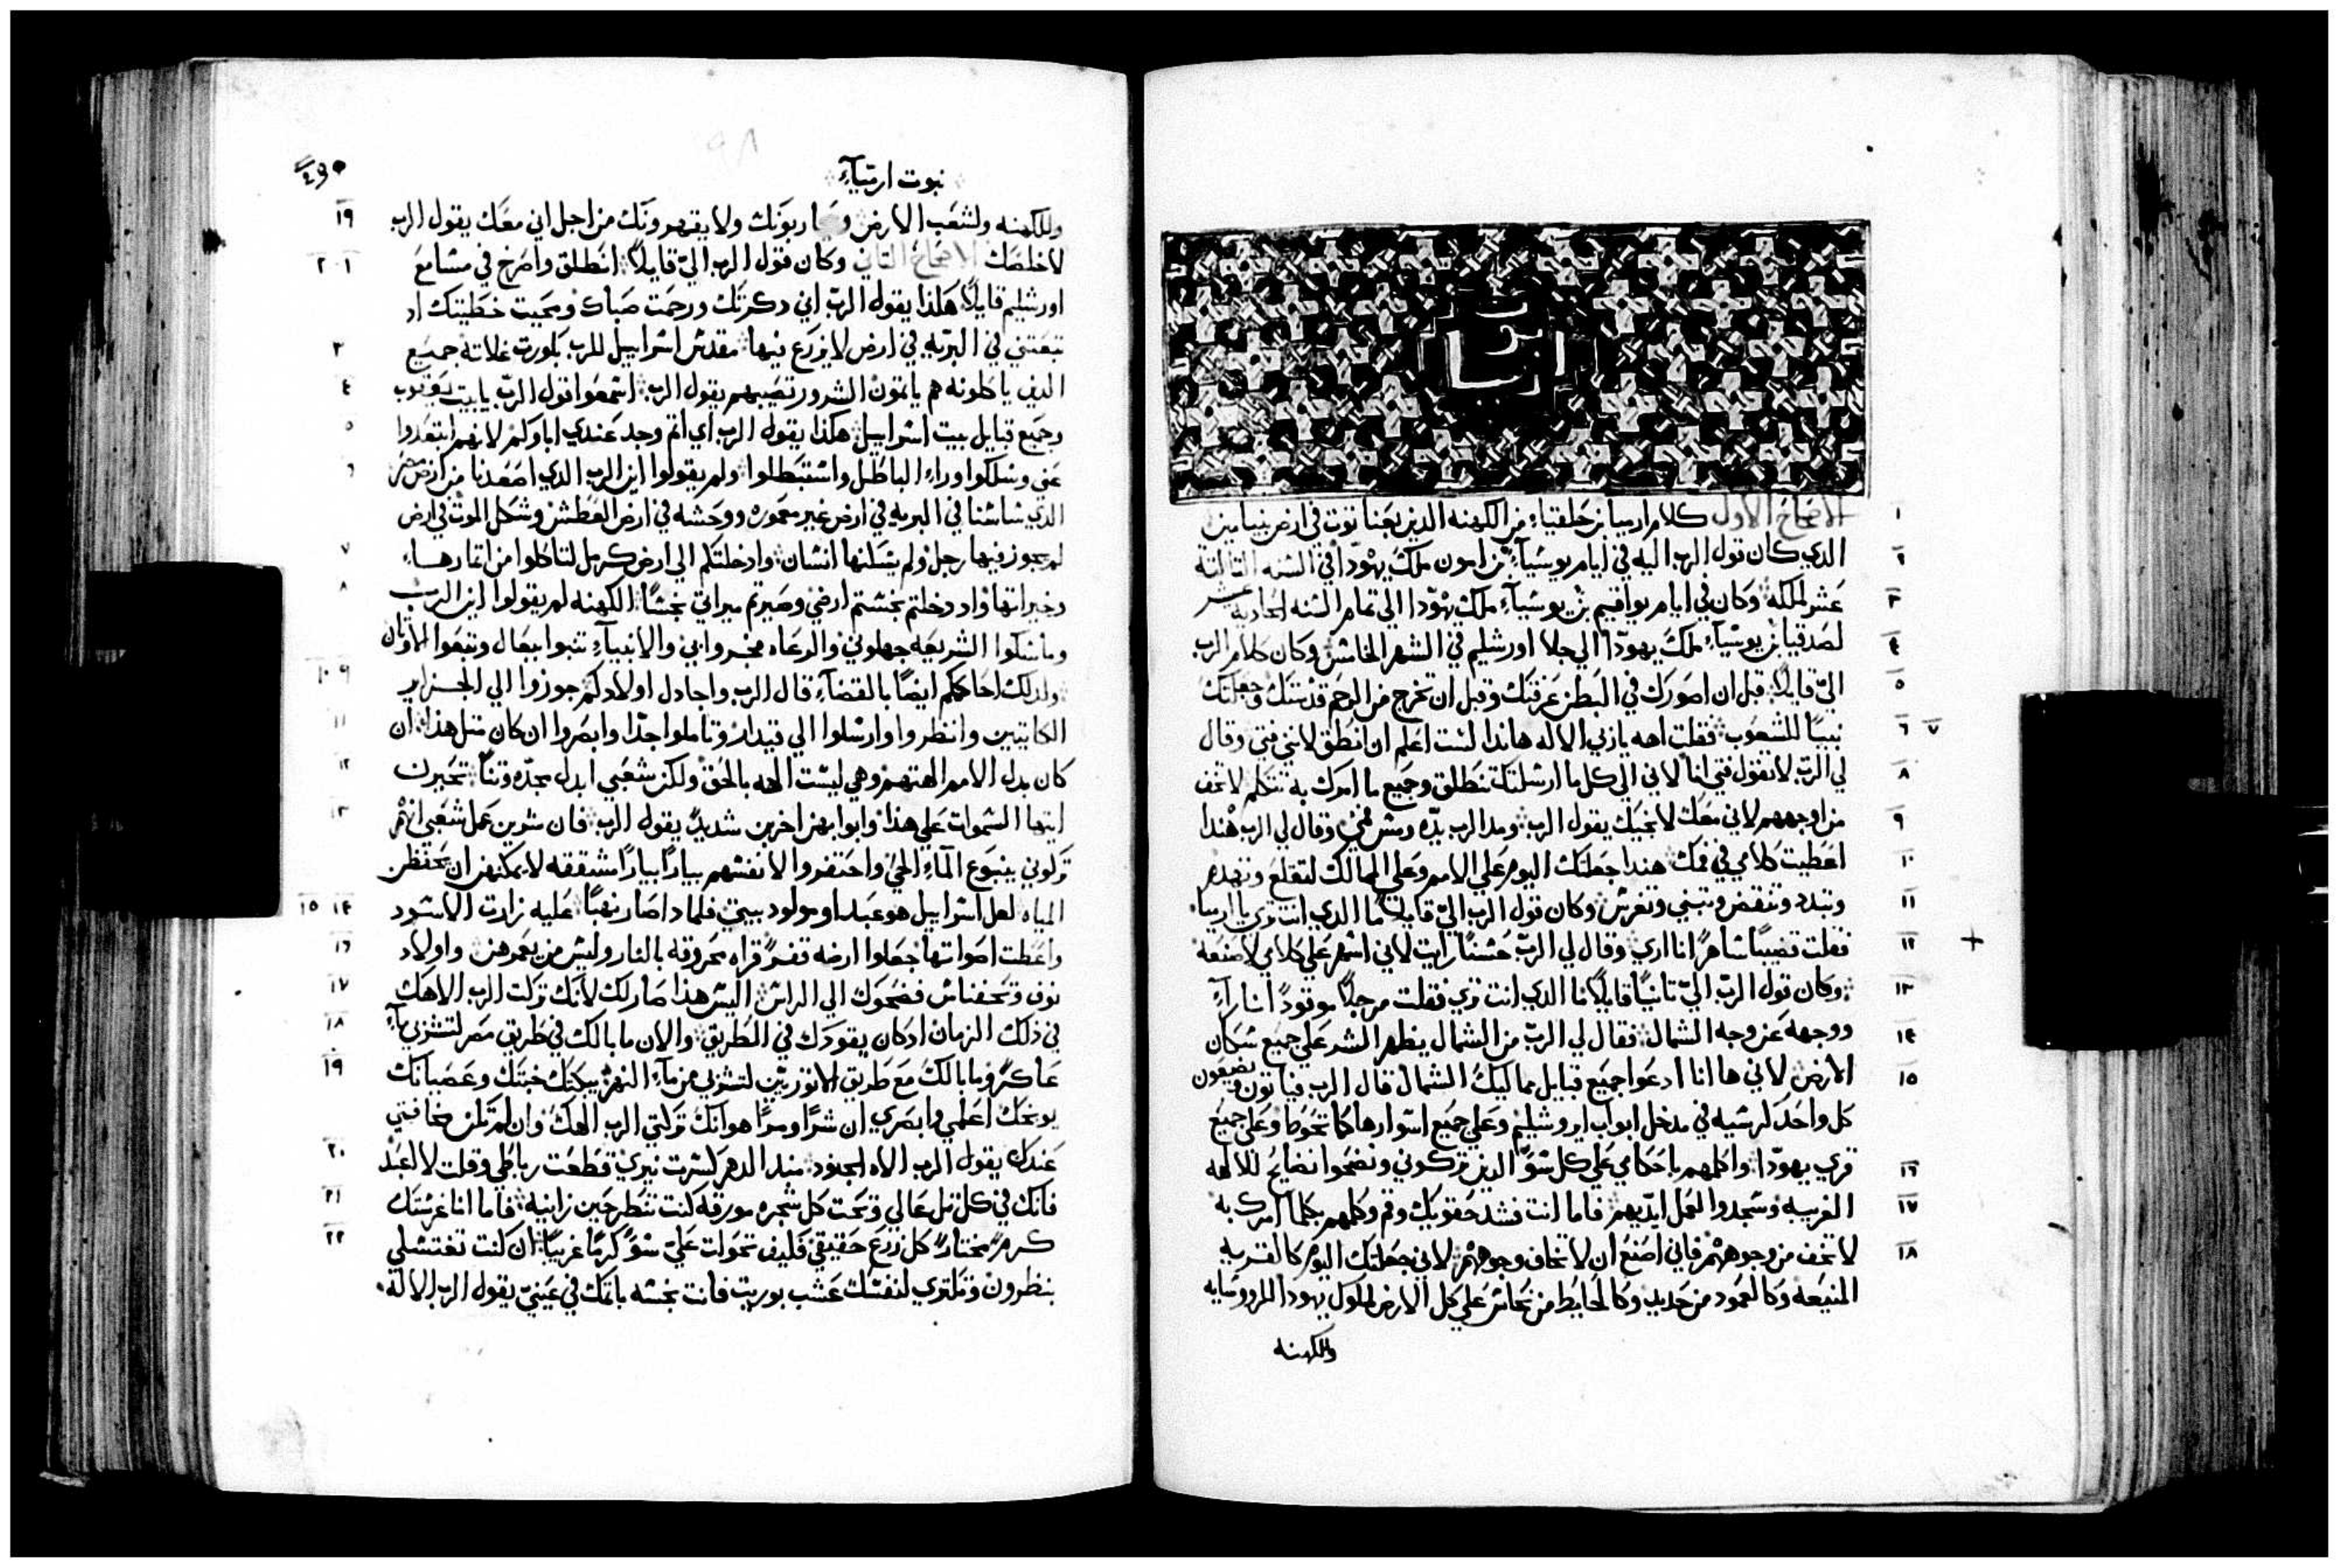 الاصحاح الاول كلام ارميا بن حلقياء من الكهنه الذين بعناتوت في ارض بنيامين
١
الذي كان قول الرب اليه في ايام يوشياء بن امون ملك يهودا في السنه التالته
٢
عشر لملكه وكان في ايام يواقيم بن يوشياء ملك يهودا الي تمام السنه الحاديه عشر
٣
لصدقيا بن يوشياء ملك يهودا الي جلا اورشليم في الشهر الخامس وكان كلام الرب
٤
الي قايلا قبل ان اصورك في البطن عرفتك وقبل ان تخرج من الرحم قدستك وجعلتك
٥
نبيا للشعوب فقلت اهه يا ربي الاله هاندا لست اعلم ان انطق لانني فتي وقال
٦ ٧
لي الرب لا تقول فتي انا لاني الي كل ما ارسلتك تنطلق وجميع ما امرك به تتكلم لا تخف
٨
من اوجههم لاني معك لانجيك يقول الرب ومد الرب يده ومس فمي وقال لي الرب هندا
٩
اعطيت كلامي في فمك هندا جعلتك اليوم علي الامم وعلي الممالك لتقلع وتهدم
١٠
وتبدد وتنقض وتبني وتغرس وكان قول الرب الي قايلا ما الذي انت تري يا ارميا
١١
فقلت قضيبا ساهرا انا اري وقال لي الرب حسنا رايت لاني اسهر علي كلامي لاصنعه
١٢ +
وكان قول الرب الي تانيا قايلا ما الذي انت تري فقلت مرجلا موقودا انا راء
١٣
ووجهه عن وجه الشمال فقال لي الرب من الشمال يظهر الشر علي جميع سكان
١٤
الارض لاني ها انا ادعوا جميع قبايل مماليك الشمال قال الرب فياتون ويضعون
١٥
كل واحد كرسيه في مدخل ابواب اروشليم وعلي جميع اسوارها كما تحوط وعلي جميع
قري يهودا واكلمهم باحكامي علي كل سو الذين تركوني ونضحوا نضايح للالهه
١٦
الغريبه وسجدوا لعمل ايديهم فاما انت فشد حقويك وقم وكلمهم بكلما امرك به
١٧
لا تخف من وجوههم فاني اصنع ان لا تخاف وجوههم لاني جعلتك اليوم كالقريه
١٨
المنيعه وكالعمود من حديد وكالحايط من نحاس علي كل الارض لملوك يهودا للرووسايه
والكهنه
نبوت ارمياء
وللكهنه ولشعب الارض ربونك ولا يقهرونك من اجل اني معك يقول الرب
١٩
لاخلصك الاصحاح التاني وكان قول الرب الي قايلا انطلق واصرخ في مسامع
٢٠١
اورشليم قايلا هكذا يقول الرب اني دكرتك ورحمت صباك ومحبت خطيتك اد
تبعتني في البريه في ارض لا يزرع فيها مقدس اسراييل للرب بكورت غلاته جميع
٣
الدين ياكلونه هم ياتمون الشرور تصيبهم يقول الرب اسمعوا قول الرب يا بيت يعقوب
٤
وجميع قبايل بيت اسراييل هكذا يقول الرب اي اتم وجد عندي اباوكم لانهم ابتعدوا
٥
عني وسلكوا وراء الباطل واستبطلوا ولم يقولوا اين الرب الدي اصعدنا من ارض مصر
٦
الدي ساسنا في البريه في ارض غير معموره ووحشه في ارض العطش وشكل الموت في ارض
لم يجوز فيها رجل ولم يسكنها انسان وادخلتكم الي ارض كرمل لتاكلوا من اتمارها
٧
وخيراتها واد دخلتم نجستم ارضي وصيرتم ميراتي نجسا الكهنه لم يقولوا اين الرب
٨
وماسكوا الشريعه جهلوني والرعاه فجروا بي والانبياء تنبوا ببعال وتبعوا الاوتان
ولدلك احاكمكم ايضا بالقضاء قال الرب واجادل اولادكم جوزوا الي الجزاير
٩ ١٠
الكاتيين وانظروا وارسلوا الي قيدار وتاملوا جدا وابصروا ان كان مثل هذا ان
١١
كان بدل الامم الهتهم وهي ليست الهه بالحق ولكن شعبي ابدل مجده وتنا تحيرن
١٢
ايتها السموات علي هذا وابوابهن اخربن شديدا يقول الرب فان سوين عمل شعبي
١٣
تركوني ينبوع الماء الحي واحتفروا لانفسهم بيارا بيارا مشققه لا يمكنهن ان تحفظن
المياه لعل اسراييل هو عبد او مولود بيتي فلمادا صار نهبا عليه زارت الاسود
١٤ ١٥
واعطت اصواتها جعلوا ارضه تفرا قراه محروقه بالنار وليس من يعمرهن واولاد
١٦
نوف وتحفناس فضحوك الي الراس اليس هذا صار لك لانك تركت الرب الاهك
١٧
في ذلك الزمان ادكان يقودك في الطريق والان ما بالك في طريق مصر لتشربي ماء
١٨
عاكرا وما بالك مع طريق الاتوريين لتشربي من ماء النهر يبكتك خبتك وعصيانك
١٩
يوبخك اعلمي وابصري ان شرا ومرا هو انك تركتي الرب الهك وان لم تكن مخافتي
عندك يقول الرب الاه الجنود مند الدهر كسرت نيري قطعت رباطي وقلت لا اعبد
٢٠
فانك في كل تل عالي وتحت كل شجره مورقه كنت تنطرحين زانيه فاما انا غرستك
٢١
كرم مختار كل زرع حقيقي فكيف تحولت علي سو كرما غريبا ان كنت تغتسلي
٢٢
بنطرون وتكتري لنفسك عشب بوريت فانت نجسه باتمك في عيني يقول الرب الاله